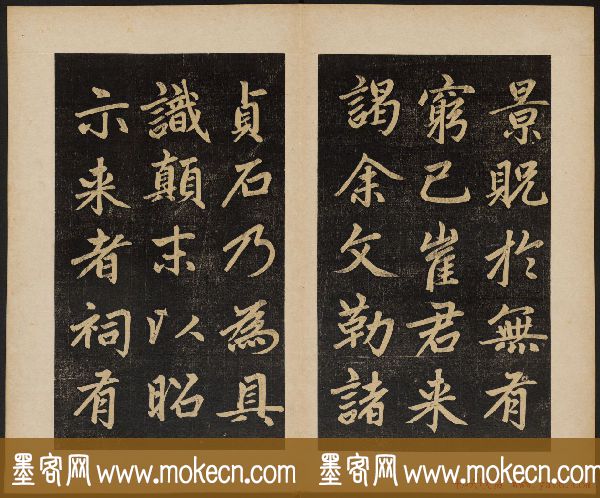 景貺於無有
窮已崔君来
謁余文勒諸
貞石乃為具
識顛末以昭
示来者祠有
墨客网 www.mokecn.com 墨客网 www.mokecn.com